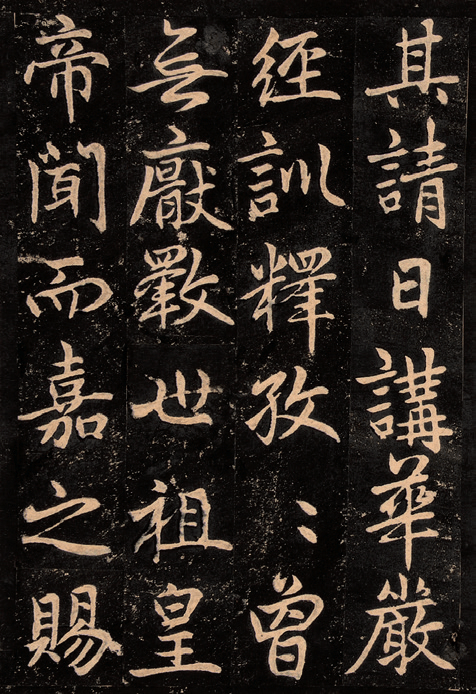 其請日講華嚴
經訓釋孜〻曾
无厭斁世祖皇
帝聞而嘉之賜